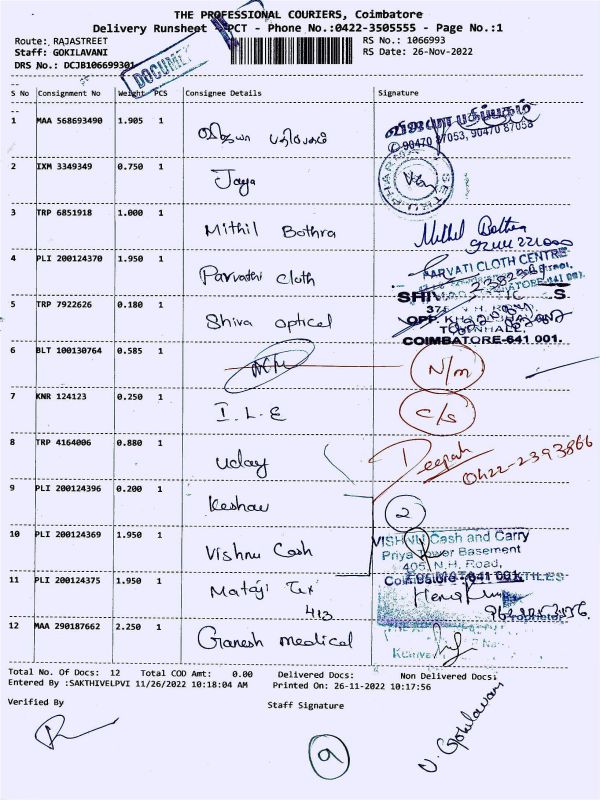 THE PROFESSIONAL COURIERS, Coimbatore
Delivery Runsheet - PCT - Phone No.:0422-3505555 - Page No.:1
Route: RAJASTREET
Staff: GOKILAVANI
DRS No.: DCJB106699301
DOCUMENT
RS No.: 1066993
RS Date: 26-Nov-2022
S No Consignment No Weight PCS Consignee Details Signature
1 MAA 568693490 1.905 1 விஜயா பதிப்பகம் விஜயா பதிப்பகம்
90470 87053, 90470 87058
2 IXM 3349349 0.750 1 Jaya
3 TRP 6851918 1.000 1 Mithil Bothra Mithil Bothra
4 PLI 200124370 1.950 1 Parvathi Cloth PARVATI CLOTH CENTRE
5 TRP 7922626 0.180 1 Shiva Optical
TOWNHALL,
COIMBATORE-641 001.
6 BLT 100130764 0.585 1 N/m
7 KNR 124123 0.250 1 I.L.E C/S
8 TRP 4164006 0.880 1 Uday Deepak
0422-2393866
9 PLI 200124396 0.200 1 Keshav 2
10 PLI 200124369 1.950 1 Vishnu Cash VISHNU Cash and Carry
Priya Tower Basement
405, N.H. Road,
Coimbatore - 641 001.
11 PLI 200124375 1.950 1 Mataji Tex TEXTILES
413
Proprietor
12 MAA 290187662 2.250 1 Ganesh Medical
Total No. Of Docs: 12 Total COD Amt: 0.00 Delivered Docs: Non Delivered Docs:
Entered By :SAKTHIVELPVI 11/26/2022 10:18:04 AM Printed On: 26-11-2022 10:17:56
Verified By
Staff Signature
N. Gokilavani
9